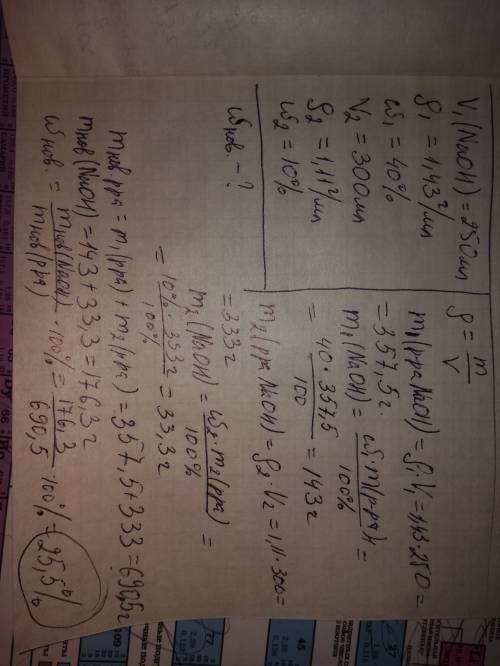 V₁(NaOH) = 250мл
ρ₁ = 1,43г/мл
ω₁ = 40%
V₂ = 300мл
ρ₂ = 1,11г/мл
ω₂ = 10%
ωнов. – ?
ρ = m/V
m₁(рра NaOH) = ρ·V₁ = 1,43·250 =
= 357,5г.
m₁(NaOH) = ω·m(р-ра)/100% =
= 40·357,5/100 = 143г
m₂(рра NaOH) = ρ₂·V₂ = 1,11·300 =
= 333г
m₂(NaOH) = ω₂·m₂(рра)/100% =
= 10%·333г/100% = 33,3г
mнов рра = m₁(рра) + m₂(рра) = 357,5+333 = 690,5г
mнов(NaOH) = 143+33,3 = 176,3г
ωнов. = mнов(NaOH)/mнов(рра) ·100% = 176,3/690,5 ·100% = 25,5%